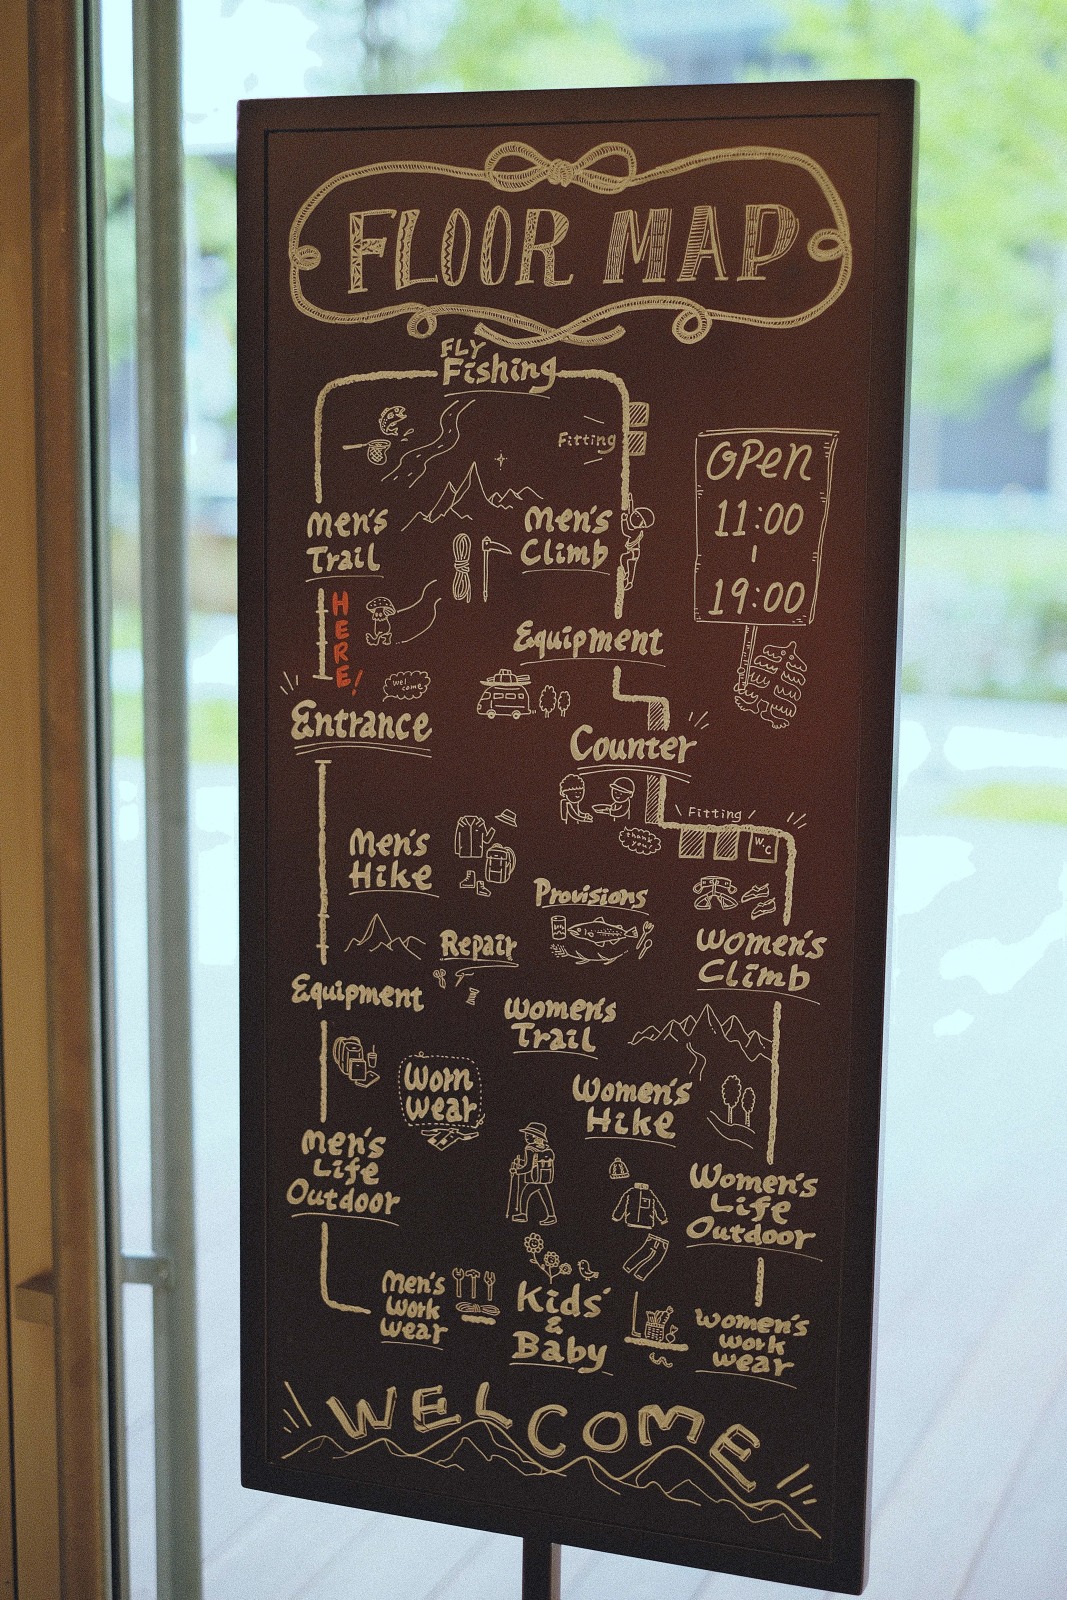 FLOOR MAP
FLY
Fishing
Fitting
OPEN
11:00
|
19:00
Men's
Trail
Men's
Climb
HERE!
Equipment
wel
come
Entrance
Counter
Fitting
thank
you!
W.C
Men's
Hike
Provisions
Repair
Women's
Climb
Equipment
Women's
Trail
Worn
Wear
Women's
Hike
Men's
Life
Outdoor
Women's
Life
Outdoor
Men's
Work
Wear
Kids'
&
Baby
Women's
Work
Wear
WELCOME